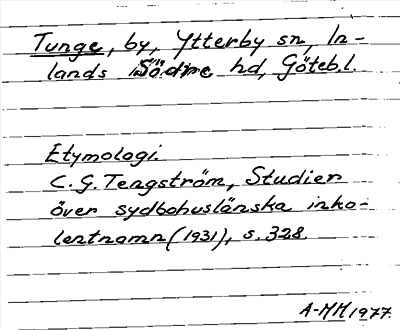 Tunge, by, Ytterby sn, In-
lands Södre hd, Göteb.l.
Etymologi.
C.G. Tengström, Studier
över sydbohuslänska inko-
lentnamn (1931), s. 328
A-MM 1977.